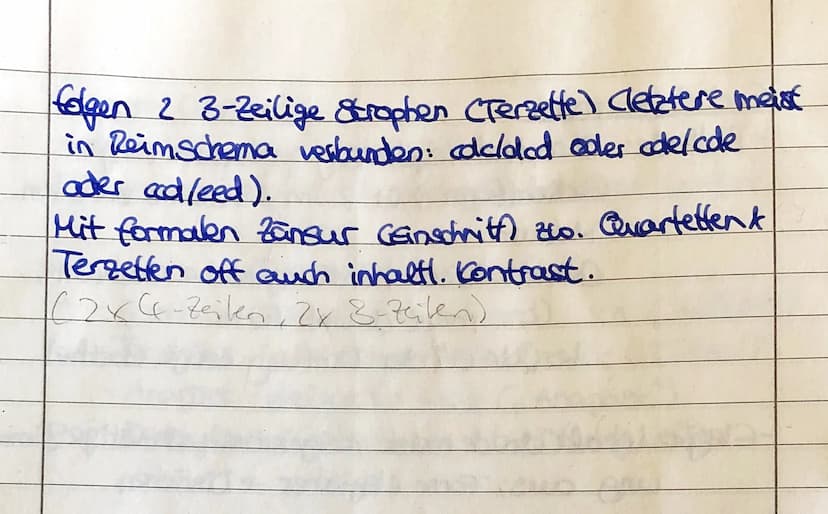 folgen 2 3-Zeilige Strophen (Terzette) (letztere meist
in Reimschema verbunden: cdc/dcd oder cde/cde
oder ccd/eed).
Mit formalen Zänsur (Einschnitt) zw. Quartetten &
Terzetten oft auch inhaltl. Kontrast.
(2x 4-Zeilen, 2x 3-Zeilen)